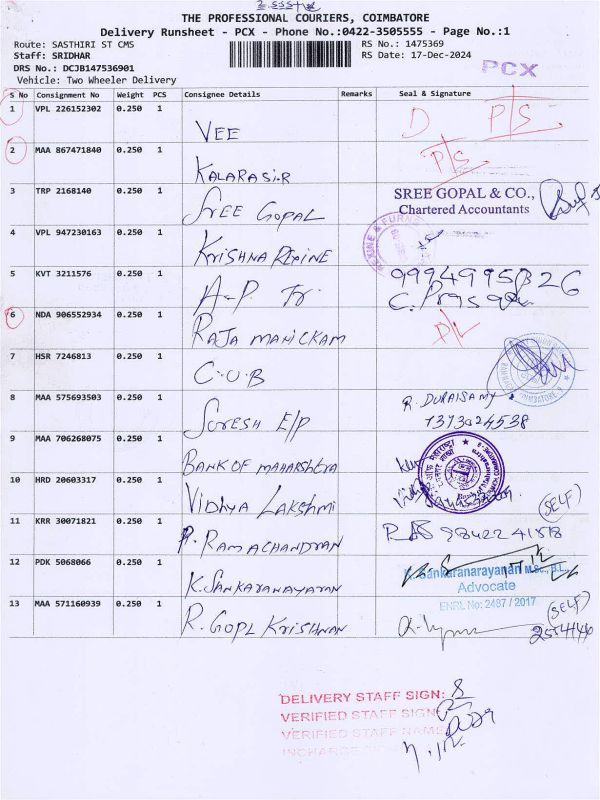 THE PROFESSIONAL COURIERS, COIMBATORE
Delivery Runsheet - PCX - Phone No.:0422-3505555 - Page No.:1
Route: SASTHIRI ST CMS
RS No.: 1475369
Staff: SRIDHAR
RS Date: 17-Dec-2024
DRS No.: DCJB147536901
PCX
Vehicle: Two Wheeler Delivery
S No Consignment No Weight PCS Consignee Details Remarks Seal & Signature
1 VPL 226152302 0.250 1 VEE D P/S
2 MAA 867471840 0.250 1 KALARASI-R P/S
3 TRP 2168140 0.250 1 SREE GOPAL SREE GOPAL & CO.,
Chartered Accountants
4 VPL 947230163 0.250 1 KRISHNA REXINE
5 KVT 3211576 0.250 1 A-P Tr. 9994995826
6 NDA 906552934 0.250 1 RAJA MANICKAM P/L
7 HSR 7246813 0.250 1 C.U.B
8 MAA 575693503 0.250 1 SURESH E/P R. DURAISAMY
1373024538
9 MAA 706268075 0.250 1 BANK OF MAHARSHTRA
10 HRD 20603317 0.250 1 VIDHYA LAKSHMI (SELF)
11 KRR 30071821 0.250 1 P. RAMACHANDRAN 98422 41518
12 PDK 5068066 0.250 1 K.SANKARANAYARAN Sankaranarayanan M.Sc., B.L.,
Advocate
ENRL No: 2487 / 2017
13 MAA 571160939 0.250 1 R. GOPL KRISHNAN (SELF)
2554146
DELIVERY STAFF SIGN:
VERIFIED STAFF SIGN
VERIFIED STAFF NAME
INCHARGE